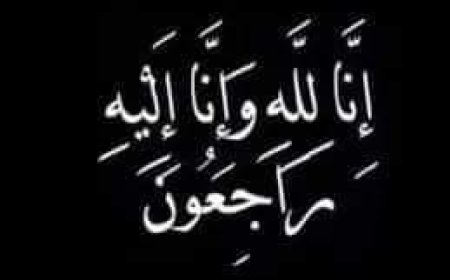 إِنَّا لِلّه وَإِنَّا إِلَيْهِ
رَاجَعُونَ